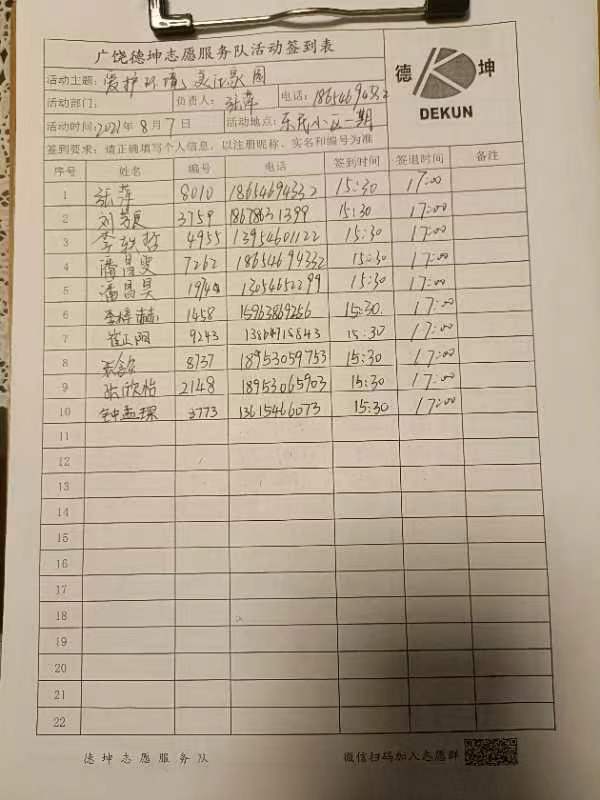 广饶德坤志愿服务队活动签到表
德 坤
DEKUN
活动主题: 爱护环境,美化家园
活动部门: 负责人: 张萍 电话: 18654694332
活动时间: 2021年 8月 7日 活动地点: 东苑小区一期
签到要求: 请正确填写个人信息, 以注册昵称、实名和编号为准
序号 姓名 编号 电话 签到时间 签退时间 备注
1 张萍 8010 18654694332 15:30 17:00
2 刘 3759 18678631399 15:30 17:00
3 李轶哲 4955 13954601122 15:30 17:00
4 潘昌雯 7262 18654694332 15:30 17:00
5 潘昌昊 13054652299 15:30 17:00
6 李梓赫 1458 15963869256 15:30 17:00
7 崔正阳 9243 15:30 17:00
8 8737 18953059753 15:30 17:00
9 张欣怡 2148 18953065903 15:30 17:00
10 钟孟琛 3773 13615466073 15:30 17:00
11
12
13
14
15
16
17
18
19
20
21
22
德坤志愿服务队 微信扫码加入志愿群